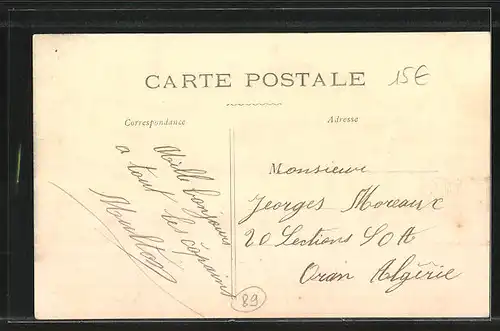 CARTE POSTALE
15€
Correspondance
Adresse
Mille bonjours
a tout les copains
Monsieur
Georges Moreaux
20 Sections S O A
Oran Algérie
89